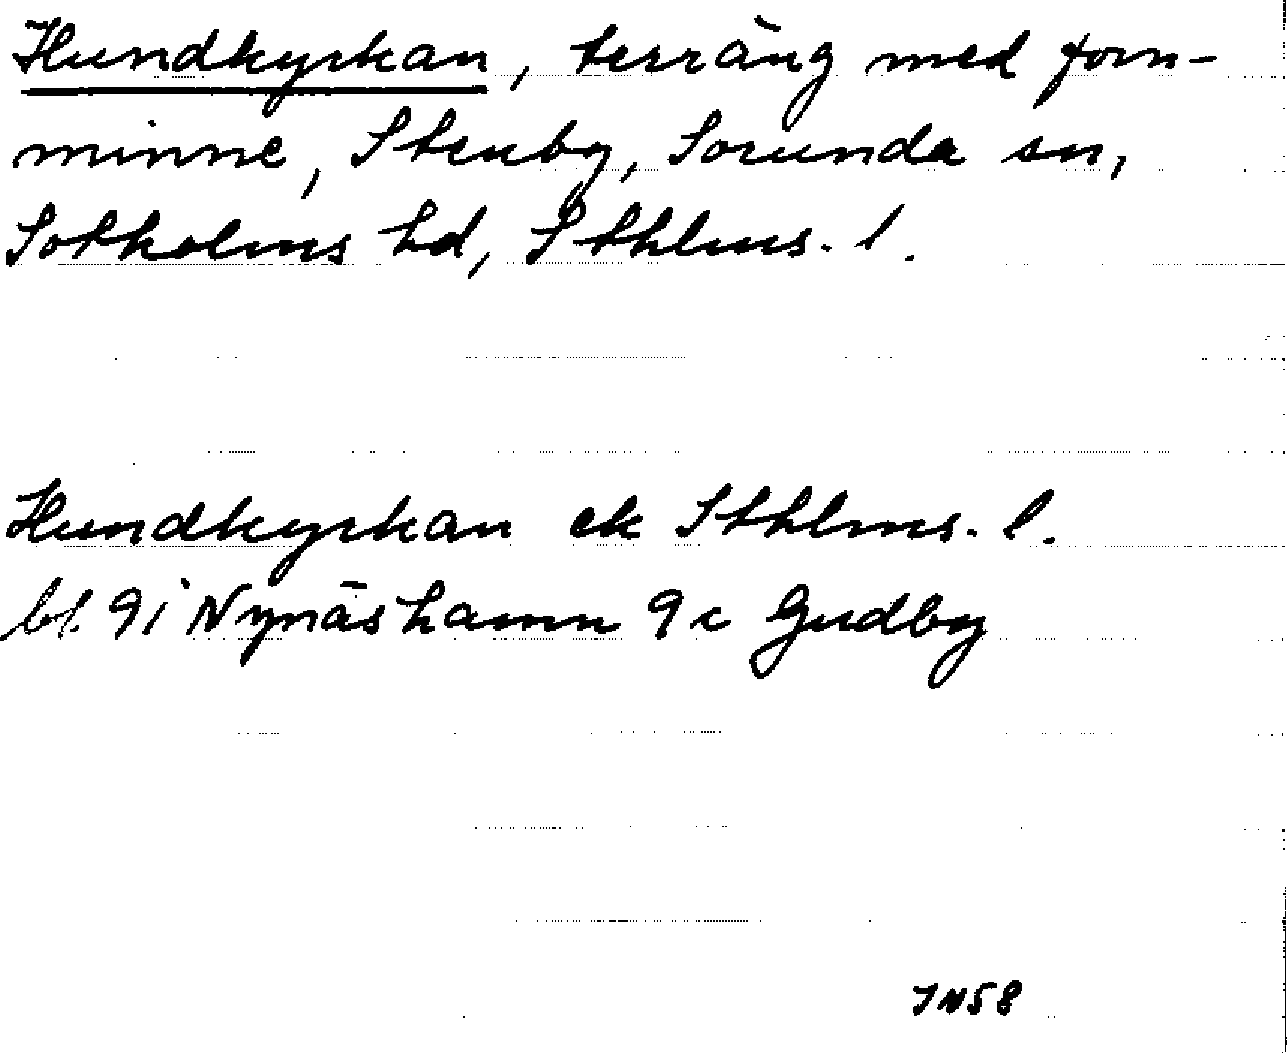 Hundkyrkan, terräng med forn-
minne, Stenby, Sorunda sn,
Sotholms hd, Sthlms. l.
Hundkyrkan ek Sthlms. l.
bl. 9i Nynäshamn 9c Gudby
JN58